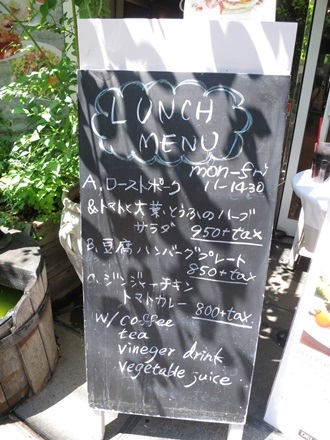 LUNCH
MENU
mon-fri
A. ローストポーク 11-14:30
&トマトと大葉ととうふのハーブ
サラダ 950+tax
B. 豆腐ハンバーグプレート
850+tax
C. ジンジャーチキン
トマトカレー 800+tax
W/ coffee
tea
vineger drink
vegetable juice.